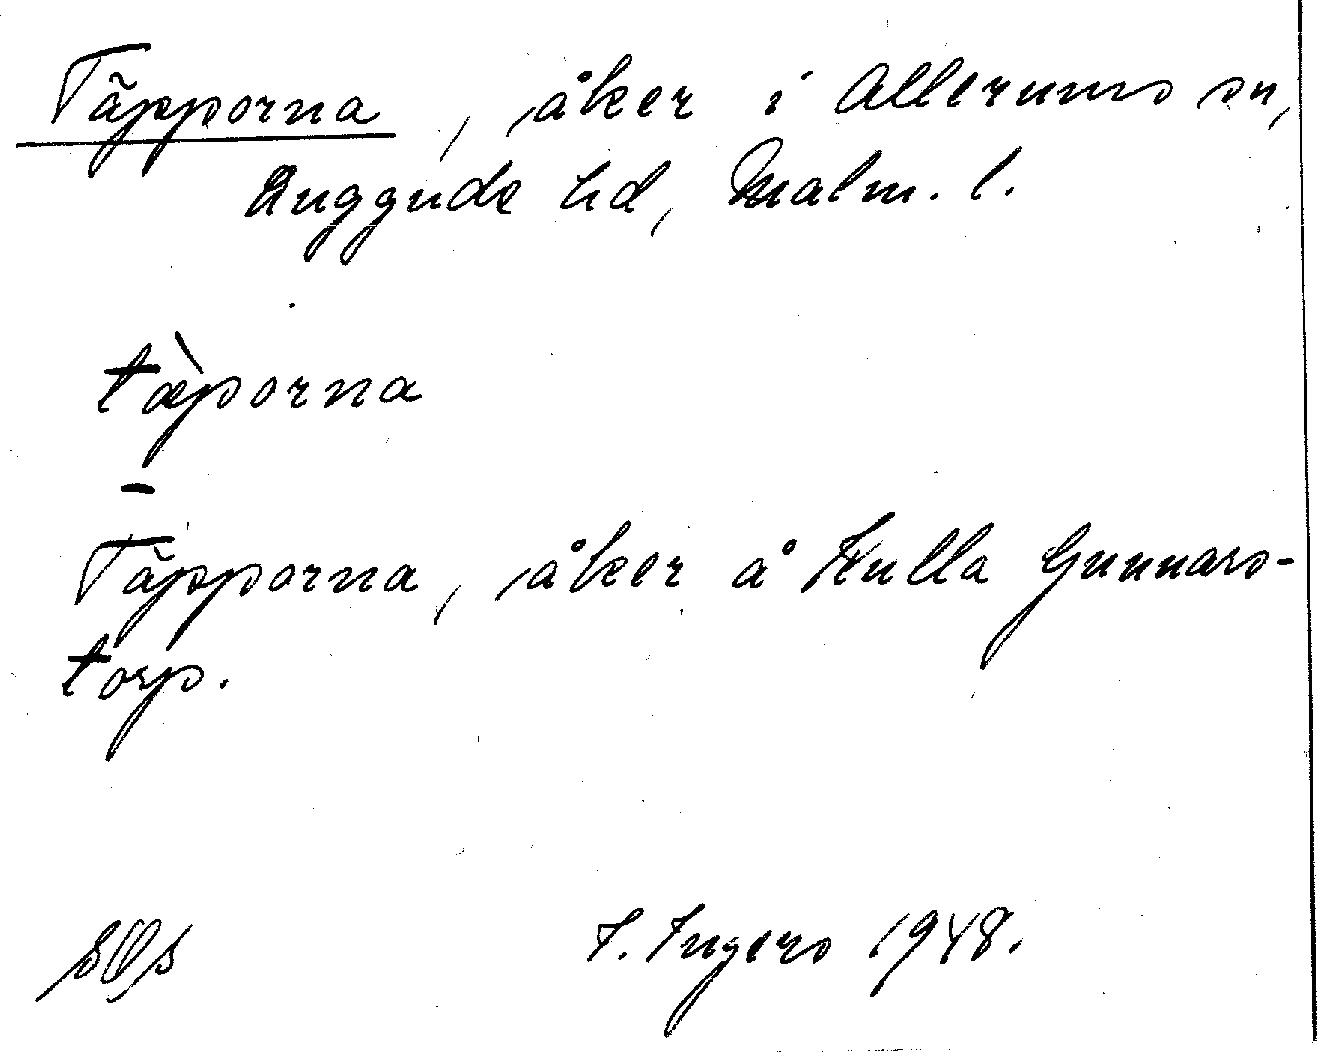 Täpporna, åker i Allerums sn,
Luggude hd, Malm. l.
tæ̀porna
–
Täpporna, åker å Kulla Gunnars-
torp.
I. Ingers 1948.